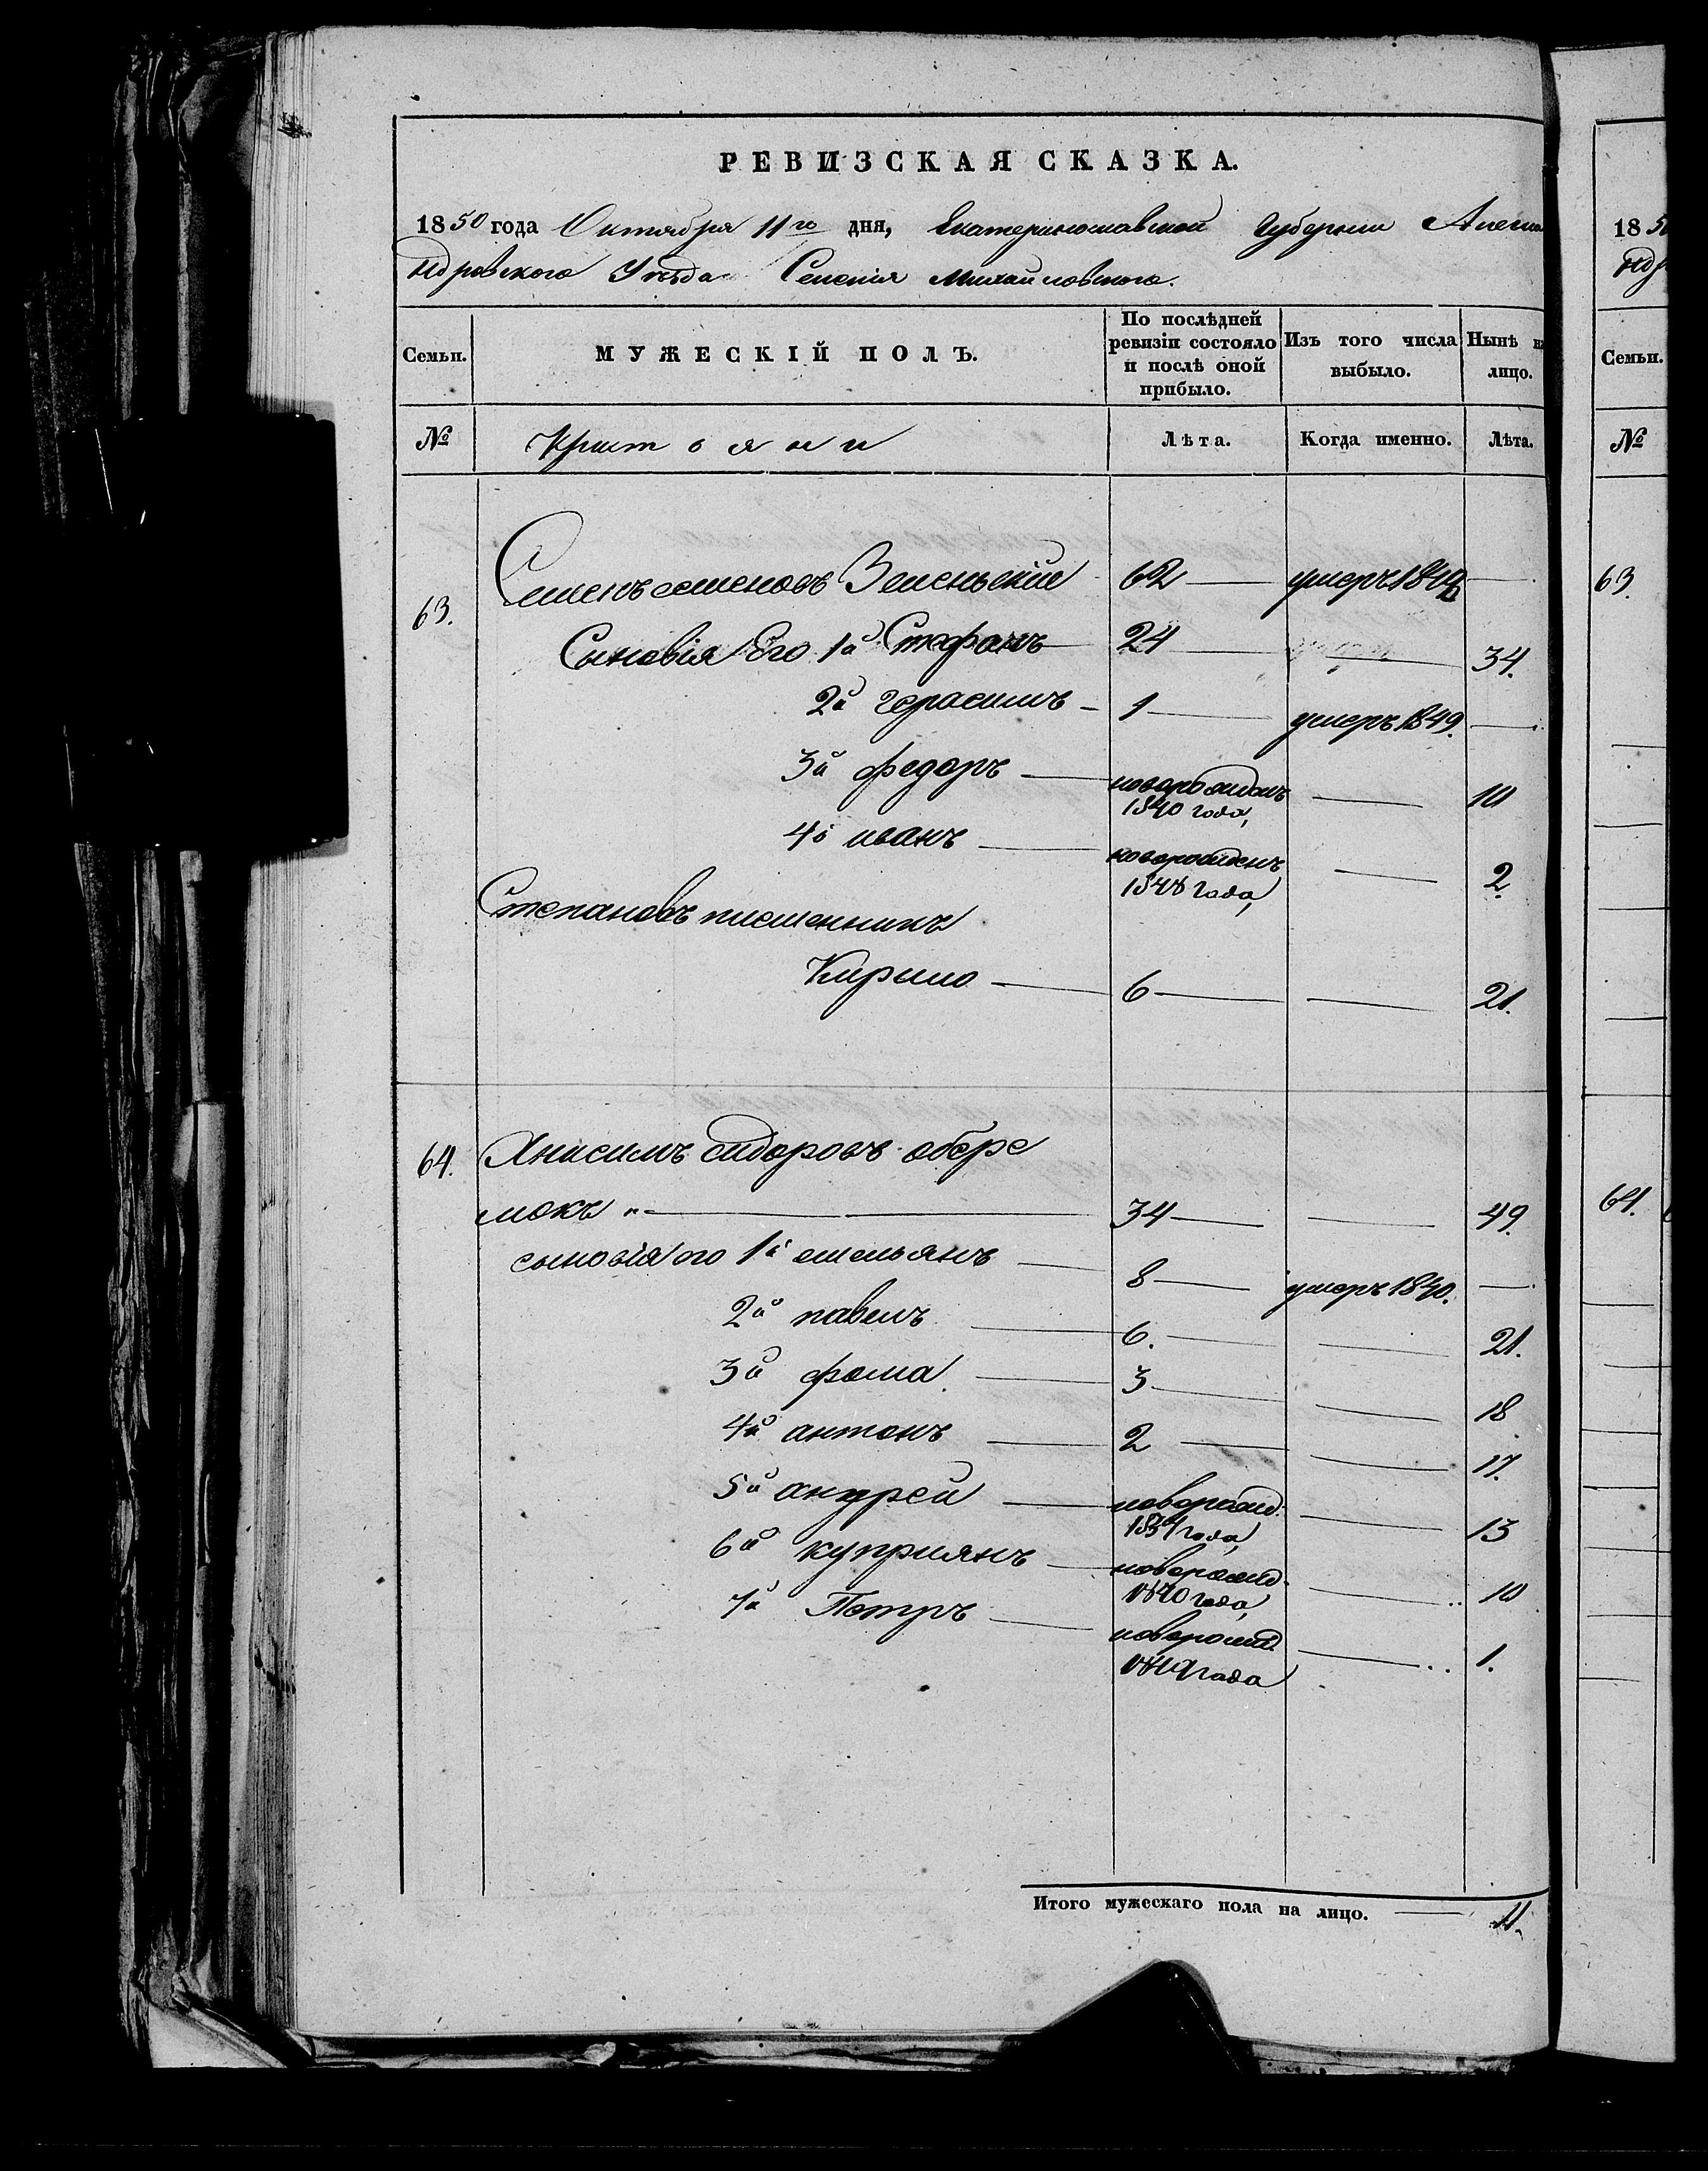 РЕВИЗСКАЯ СКАЗКА.
1850 года Октября 11го дня, Екатеринославской Губернии Алекса
ндровского Уезда Селения Михайловского.
Семьи. МУЖЕСКІЙ ПОЛЪ. По послѣдней ревизіи состояло и послѣ оной прибыло. Изъ того числа выбыло. Нынѣ на лицо.
№ Крист ь я н и Лѣта. Когда именно. Лѣта.
63. Семенъ семеновъ 62 умеръ 1849
Сыновія Его 1й Стефанъ 24 34.
2й герасимъ 1 умеръ 1849.
3й федоръ новорожденъ 1840 года, 10
4й иванъ новорожденъ 1848 года, 2
Степановъ племенникъ
Кирило 6 21.
64. Анисимъ сидоровъ обере
мокъ 34 49.
сыновія его 1й емельянъ 8 умеръ 1840.
2й павелъ 6. 21.
3й фома 3 18
4й антонъ 2 17.
5й андрей новорожд. 1837 года, 13
6й куприянъ новорожд. 1840 года, 10
7й Петръ новорожд. 1849 года 1.
Итого мужескаго пола на лицо. 11.
18 50
ндр
Семьи.
№
63.
64.